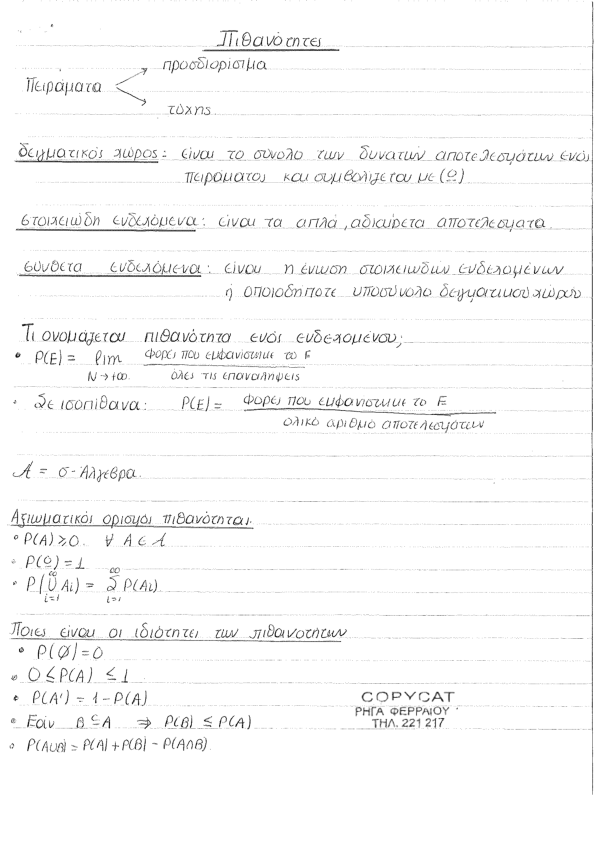 Πιθανότητες
προσδιορίσιμα
Πειράματα
τύχης
δειγματικός χώρος: είναι το σύνολο των δυνατών αποτελεσμάτων ενός
πειράματος και συμβολίζεται με (Ω)
στοιχειώδη ενδεχόμενα: είναι τα απλά, αδιαίρετα αποτελέσματα.
σύνθετα ενδεχόμενα: είναι η ένωση στοιχειωδών ενδεχομένων
ή οποιοδήποτε υποσύνολο δειγματικού χώρου
Τι ονομάζεται πιθανότητα ενός ενδεχομένου;
• P(E) = lim N→+∞ φορές που εμφανίστηκε το E / όλες τις επαναλήψεις
• Σε ισοπίθανα: P(E) = φορές που εμφανίστηκε το E / ολικό αριθμό αποτελεσμάτων
𝒜 = σ-Άλγεβρα.
Αξιωματικός ορισμός πιθανότητας.
• P(A) ≥ 0. ∀ A ∈ 𝒜
• P(Ω) = 1
• P(∪ i=1 ∞ Ai) = Σ i=1 ∞ P(Ai)
Ποιες είναι οι ιδιότητες των πιθανοτήτων
• P(∅) = 0
• 0 ≤ P(A) ≤ 1
• P(A') = 1 - P(A)
• Εάν B ⊆ A ⇒ P(B) ≤ P(A)
• P(A∪B) = P(A) + P(B) - P(A∩B)
COPYCAT
ΡΗΓΑ ΦΕΡΡΑΙΟΥ
ΤΗΛ. 221 217